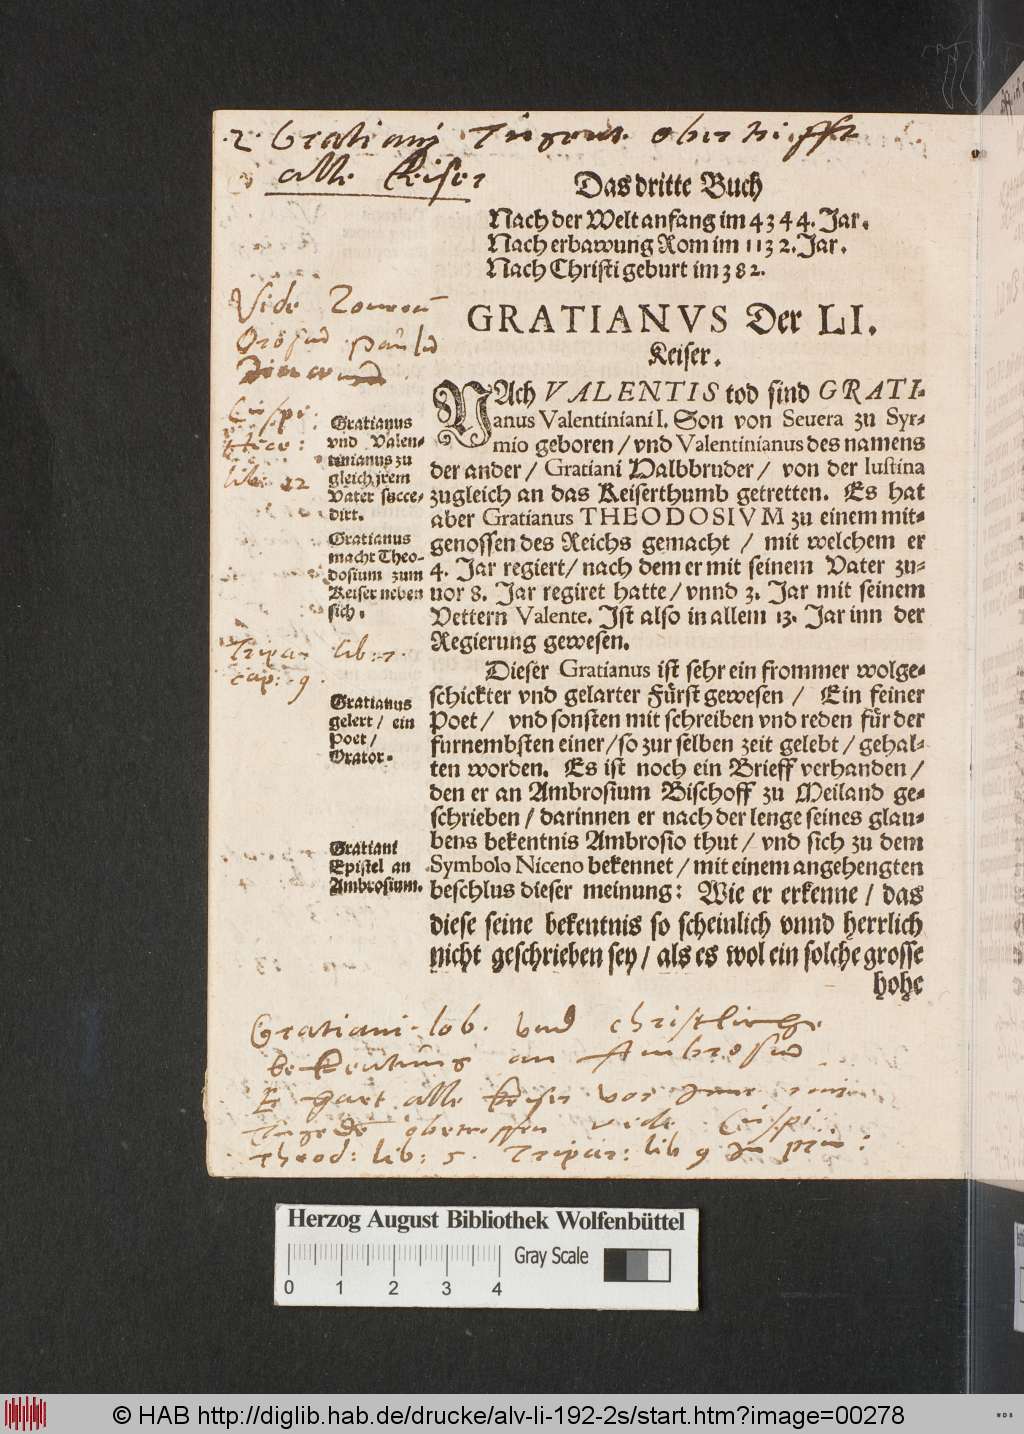 .2. Gratiani Tugent obertrifft
alle Keiser
Das dritte Buch
Nach der Welt anfang im 4344. Jar.
Nach erbawung Rom im 1132. Jar.
Nach Christi geburt im 382.
GRATIANVS Der LI.
Keiser.
Vide
lib: 12
Gratianus
vnd Valen-
tinianus zu
gleich jrem
Vater succe-
dirt.
Gratianus
macht Theo-
dosium zum
Keiser neben
sich.
Tripar lib: 7.
cap: 9.
Gratianus
gelert / ein
Poet /
Orator.
Gratiani
Epistel an
Ambrosium.
NAch VALENTIS tod sind GRATI-
anus Valentiniani I. Son von Seuera zu Syr-
mio geboren / vnd Valentinianus des namens
der ander / Gratiani Halbbruder / von der Iustina
zugleich an das Keiserthumb getretten. Es hat
aber Gratianus THEODOSIVM zu einem mit-
genossen des Reichs gemacht / mit welchem er
4. Jar regiert / nach dem er mit seinem Vater zu-
uor 8. Jar regiret hatte / vnnd 3. Jar mit seinem
Vettern Valente. Ist also in allem 13. Jar inn der
Regierung gewesen.
Dieser Gratianus ist sehr ein frommer wolge-
schickter vnd gelarter Fürst gewesen / Ein feiner
Poet / vnd sonsten mit schreiben vnd reden für der
furnembsten einer / so zur selben zeit gelebt / gehal-
ten worden. Es ist noch ein Brieff verhanden /
den er an Ambrosium Bischoff zu Meiland ge-
schrieben / darinnen er nach der lenge seines glau-
bens bekentnis Ambrosio thut / vnd sich zu dem
Symbolo Niceno bekennet / mit einem angehengten
beschlus dieser meinung: Wie er erkenne / das
diese seine bekentnis so scheinlich vnnd herrlich
nicht geschrieben sey / als es wol ein solche grosse
hohe
Gratiani lob. vnd christliche
bekentnus an Ambrosium
Er hat alle Keiser vor
vide Cuspi
Theod: lib: 5. Tripar: lib 9 in prin:
Herzog August Bibliothek Wolfenbüttel
Gray Scale
0 1 2 3 4
© HAB http://diglib.hab.de/drucke/alv-li-192-2s/start.htm?image=00278